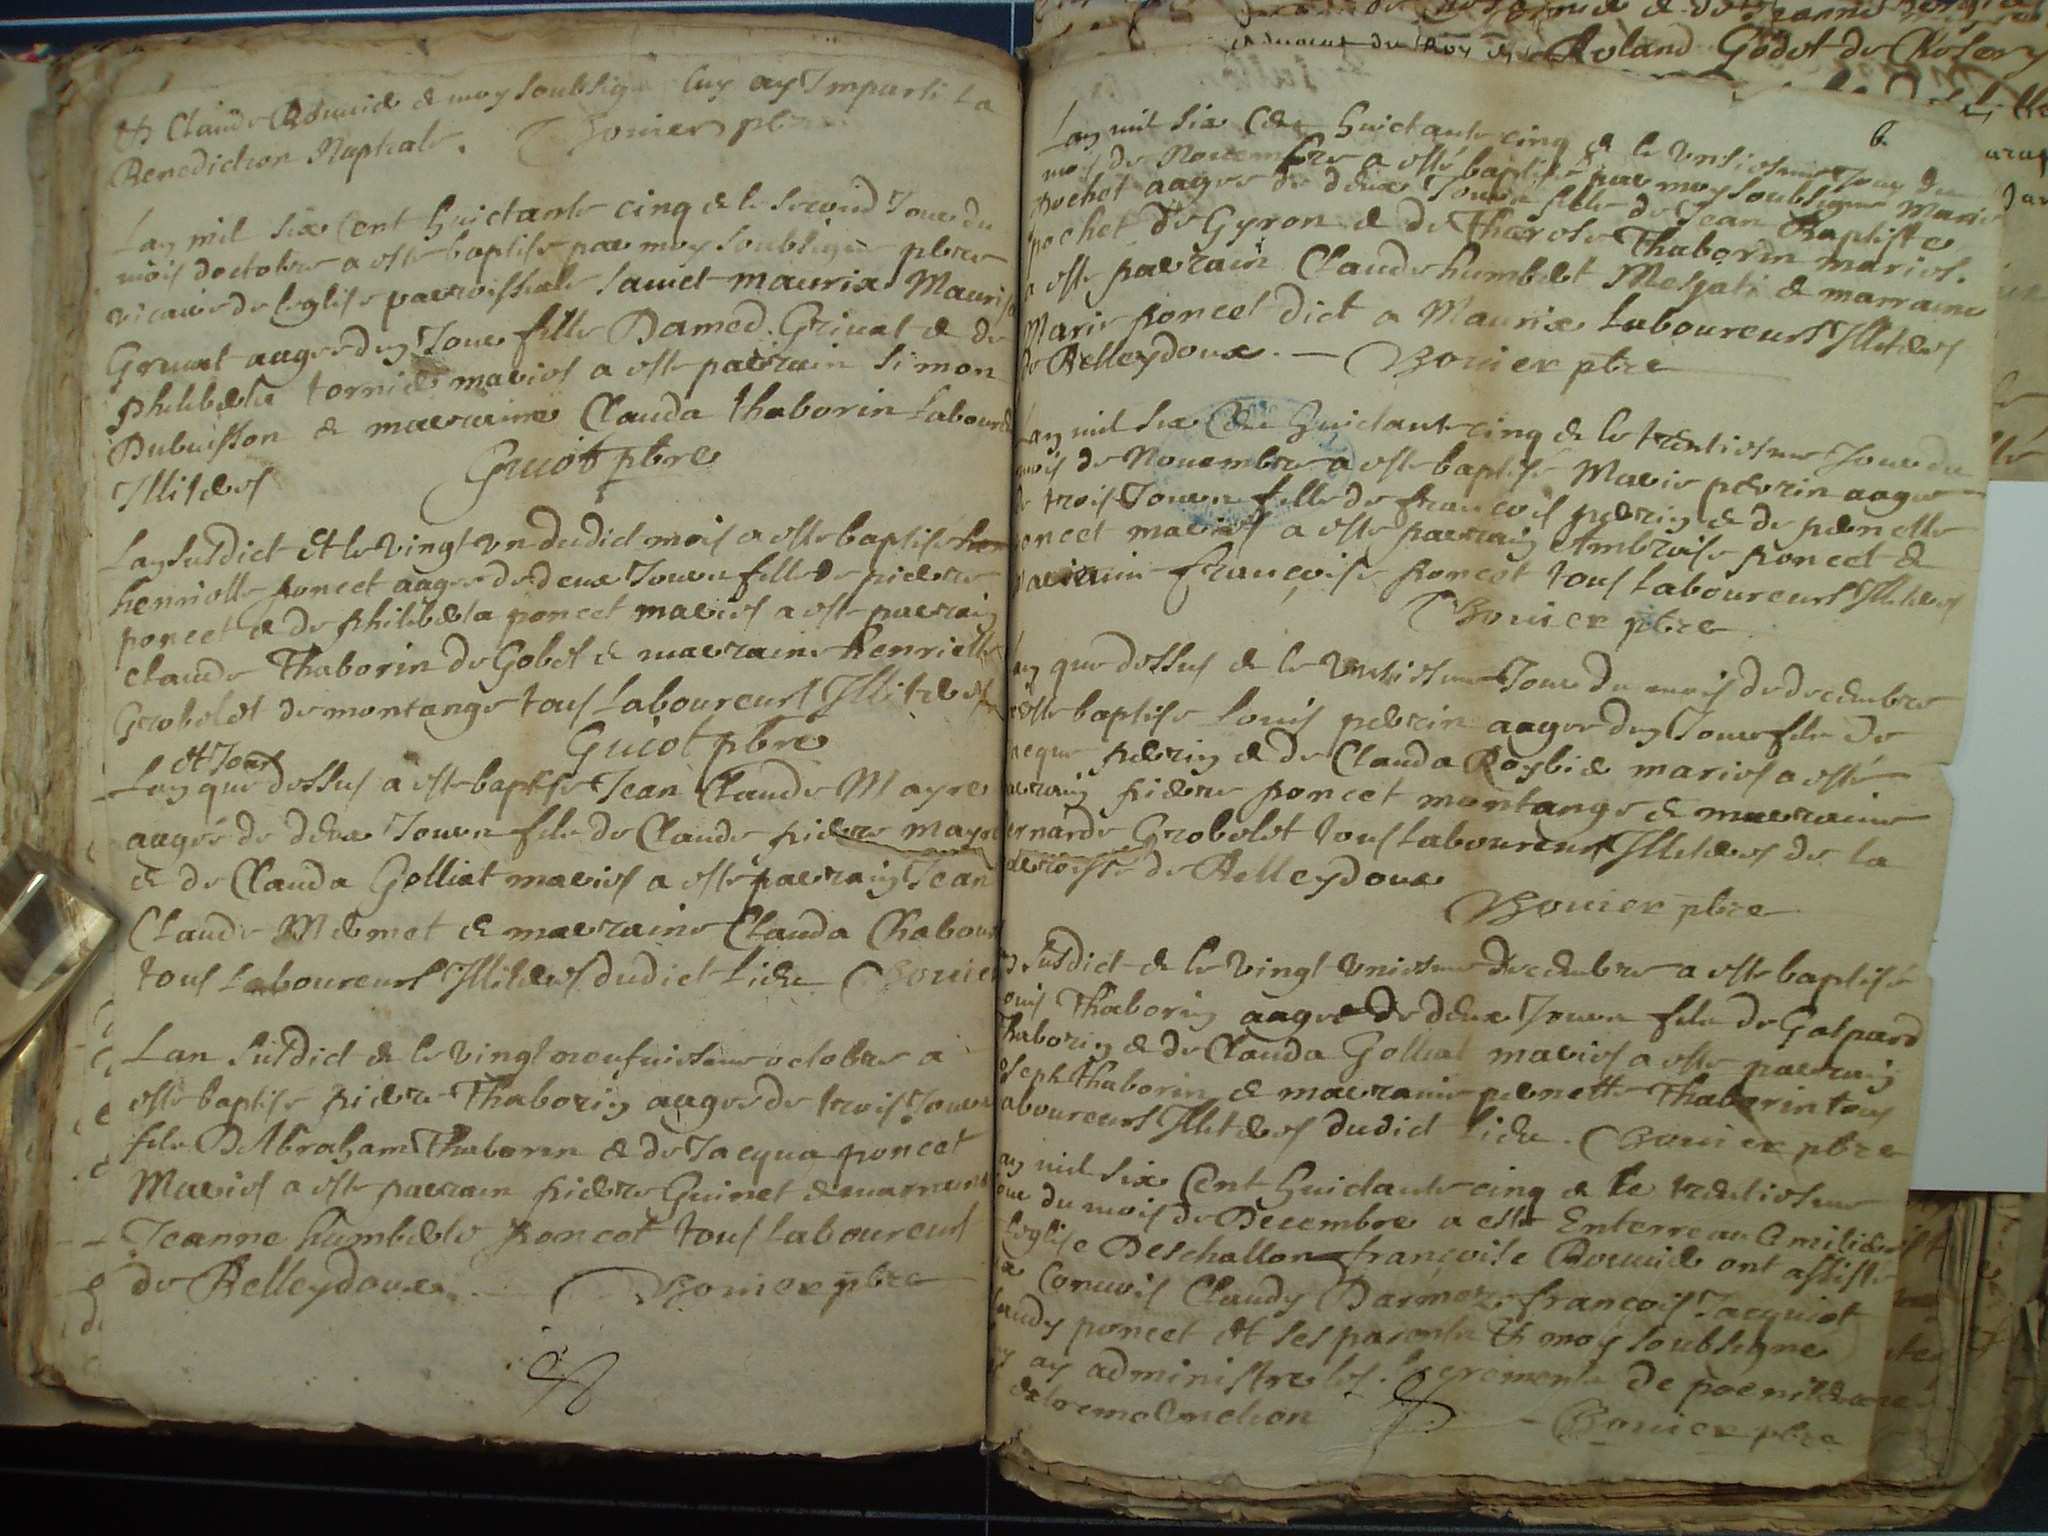 et Claude Rouuier & moy soubsigne luy ay Imparti La
Benediction Nuptiale. Bouier pbre
Lan mil six Cent huictante cinq & le second Jour du
mois doctobre a este baptise par moy soubsigne pbre
vicaire de leglise parroissiale sainct maurix Maurisa
Griuat aagee dun Jour fille Damed Griuat & de
philiberta tornier maries a este parrain Simon
Dubuisson & marraine Clauda thaborin Laboureurs
Jlliteres Guiot pbre
Lan susdict et le vingt vn dudict mois a este baptise
henriette poncet aagee de deux Jours fille de pierre
poncet & de philiberta poncet maries a este parrain
claude Thaborin de Gobet & marraine henriette
Grobelet de montange tous Laboureurs Jlliteres
Guiot pbre
et Jour
Lan que dessus a este baptise Jean Claude Mayre
aagé de deux Jours fils de Claude pierre mayre
& de Clauda Golliat maries a este parrain Jean
Claude Mermet & marraine Clauda Chabou
tous Laboureurs Jlliteres dudict Lieu Bouier
Lan susdict & le vingt neufuiesme octobre a
este baptise pierre Thaborin aagee de trois Jours
fils DAbraham Thaborin & de Jacqua poncet
Maries a este parrain pierre Guinet & marraine
Jeanne humberte poncet tous Laboureurs
de Belleydoux. Bouier pbre
6
Lan mil six Cent huictante cinq & le vnsiesme Jour du
mois de Nouembre a esté baptisé par moy soubsigne Marie
pochet aagee de deux Jours fille de Jean Baptiste
pochet de Gyron & de Therese Thaborin maries.
a este parrain Claude humbert Mesjati & marraine
Marie poncet dict a Maurix Laboureurs Jlliteres
de Belleydoux. Bouier pbre
Lan mil six Cent huictante cinq & le trentiesme Jour du
mois de Nouembre a este baptisé Marie perrin aagee
de trois Jours fille de francois perrin & de pernette
poncet maries a este parrain Ambroise poncet &
marraine françoise poncet tous Laboureurs Jlliteres
Bouier pbre
Lan que dessus & le vnsiesme Jour du mois de decembre
a este baptise Louis perrin aagee dun Jour fils de
Jacque perrin & de Clauda Roybier maries a esté
parrain pierre poncet montange & marraine
bernarde Grobelet tous Laboureurs Jlliteres de la
parroisse de Belleydoux
Bouier pbre
Lan susdict & le vingt vniesme Decembre a este baptisé
Louis Thaborin aagee de deux Jours fils de Gaspard
Thaborin & de Clauda Golliat maries a este parrain
Joseph thaborin & marraine pernette Thaborin tous
Laboureurs Jlliteres dudict Lieu. Bouier pbre
Lan mil six Cent huictante cinq & le trentiesme
Jour du mois de Decembre a este Enterre au Cmitiere
Leglise Deschallon françoise Rouuier ont assisté
Conuois Claudy Darmez francois Jacquiot
Claudy poncet et ses parents & moy soubsigne
luy ay administre les sacrements de poenitence
& extreme onction Bouier pbre
Roland Godet de